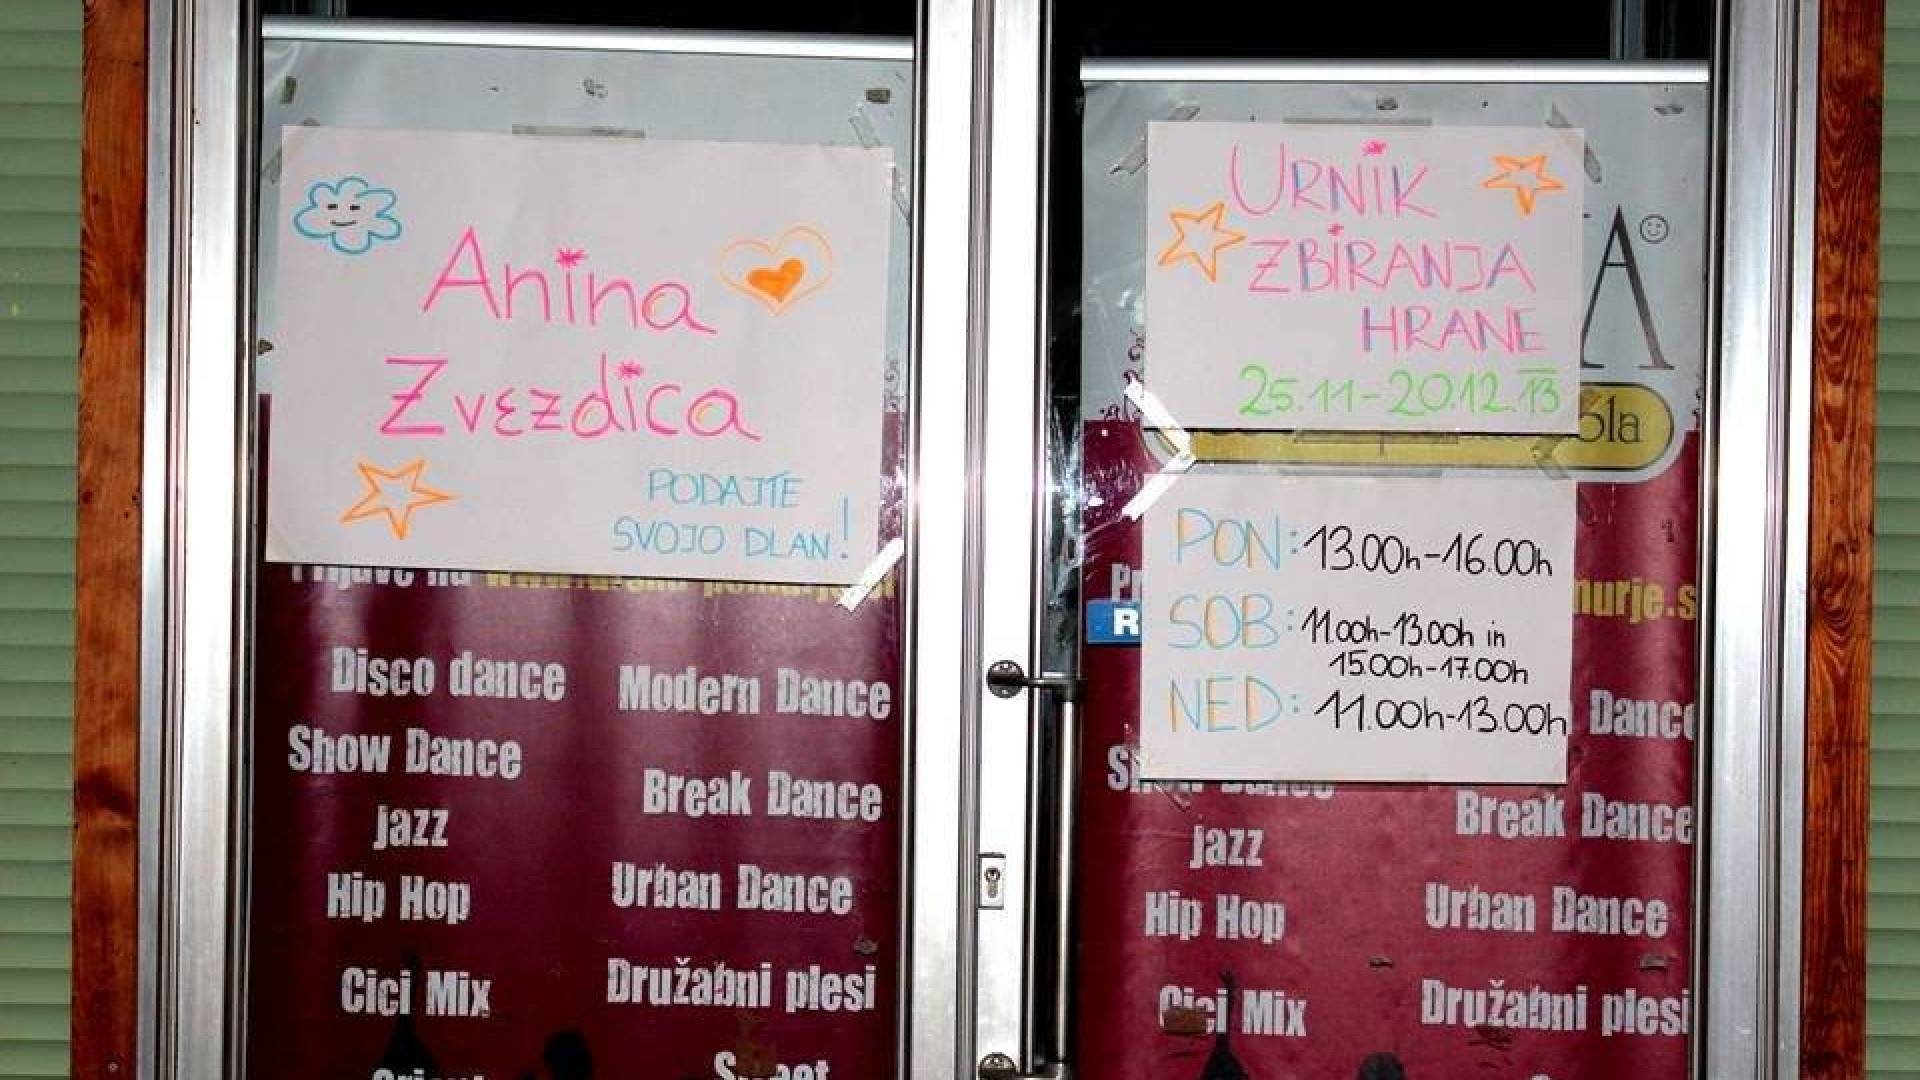 Anina
Zvezdica
PODAJTE
SVOJO DLAN!
Prijave na
Disco dance
Modern Dance
Show Dance
Break Dance
jazz
Hip Hop
Urban Dance
Cici Mix
Družabni plesi
URNIK
ZBIRANJA
HRANE
25.11-20.12.13
A
PON: 13.00h-16.00h
SOB: 11.00h-13.00h in
15.00h-17.00h
NED: 11.00h-13.00h
murje.s
R
Dance
Break Dance
jazz
Hip Hop
Urban Dance
Cici Mix
Družabni plesi